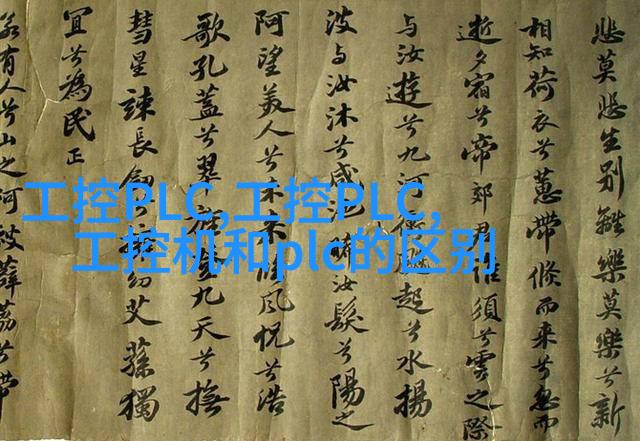 悲莫悲生别離樂莫樂兮新
相知荷衣兮蕙帶倏而来兮忽而
逝夕宿兮帝郊君誰須兮雲之際
与汝遊兮九河起兮水揚
波与汝沐兮咸池晞汝髮兮陽之
阿望美人兮未来風怳兮浩
歌孔蓋兮翠九天兮撫
彗星竦長劍幼艾蓀獨
宜兮為民正
若有人兮山之阿被薜荔兮帶
工控PLC,工控PLC,
工控机和plc的区别